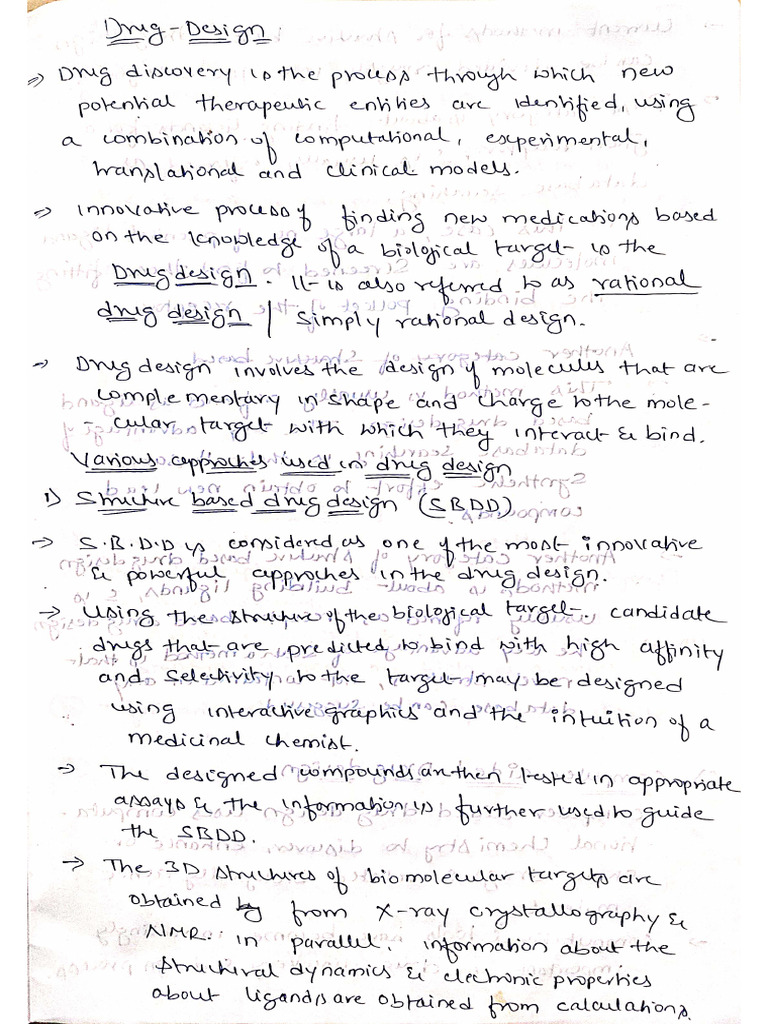 Drug-Design
⇒ Drug discovery is the process through which new
potential therapeutic entities are identified, using
a combination of computational, experimental,
translational and clinical models.
⇒ Innovative process of finding new medications based
on the knowledge of a biological target is the
Drug design. It is also referred to as rational
drug design / simply rational design.
→ Drug design involves the design of molecules that are
complementary in shape and charge to the mole-
cular target with which they interact & bind.
Various approches used in drug design
1) Structure based drug design (SBDD)
→ S.B.D.D is considered as one of the most innovative
& powerful approches in the drug design.
→ Using the structure of the biological target, candidate
drugs that are predicted to bind with high affinity
and selectivity to the target may be designed
using interactive graphics and the intuition of a
medicinal chemist.
→ The designed compounds are then tested in appropriate
assays & the information is further used to guide
the SBDD.
→ The 3D structures of biomolecular targets are
obtained from X-ray crystallography &
NMR. in parallel. information about the
structural dynamics & electronic properties
about ligands are obtained from calculations.